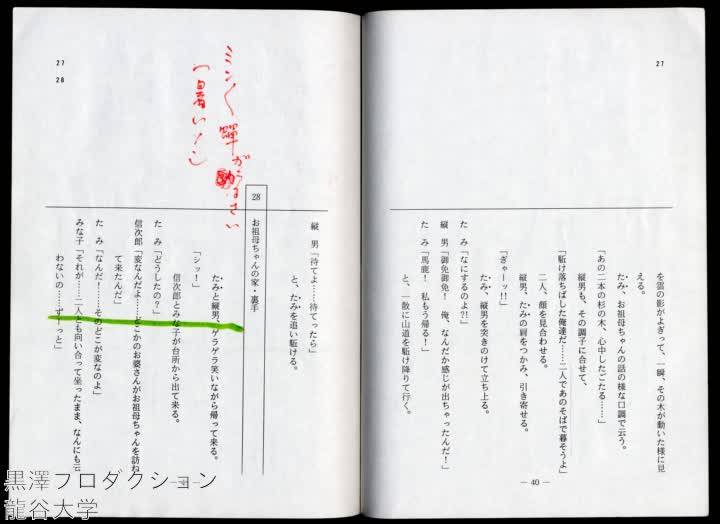 27
を雲の影がよぎって、一瞬、その木が動いた様に見
える。
たみ、お祖母ちゃんの話の様な口調で云う。
「あの二本の杉の木、心中したごたる……」
縦男も、その調子に合せて、
「駈け落ちばした俺達だ……二人であのそばで暮そうよ」
二人、顔を見合わせる。
縦男、たみの肩をつかみ、引き寄せる。
「ぎゃーッ!!」
たみ、縦男を突きのけて立ち上る。
たみ「なにするのよ?!」
縦男「御免御免! 俺、なんだか感じが出ちゃったんだ!」
たみ「馬鹿! 私もう帰る!」
と、一散に山道を駈け降りて行く。
— 40 —
27
28
縦男「待てよ……待てったら」
と、たみを追い駈ける。
28 お祖母ちゃんの家・裏手
たみと縦男、ゲラゲラ笑いながら帰って来る。
「シッ!」
信次郎とみな子が台所から出て来る。
たみ「どうしたの?」
信次郎「変なんだよ……どこかのお婆さんがお祖母ちゃんを訪ね
て来たんだ」
たみ「なんだ!……そのどこが変なのよ」
みな子「それが……二人とも向い合って坐ったまま、なんにも云
わないの……ずーっと」
ミンく 蟬がうるさい
「暑い!」
黒澤プロダクション
龍谷大学